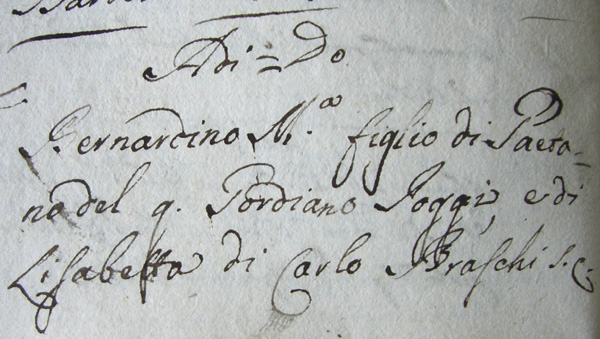 Adi = Do
Bernardino M.a figlio di Gaeta=
no del q. Gordiano Poggi, e di
Lisabetta di Carlo Braschi s.c.